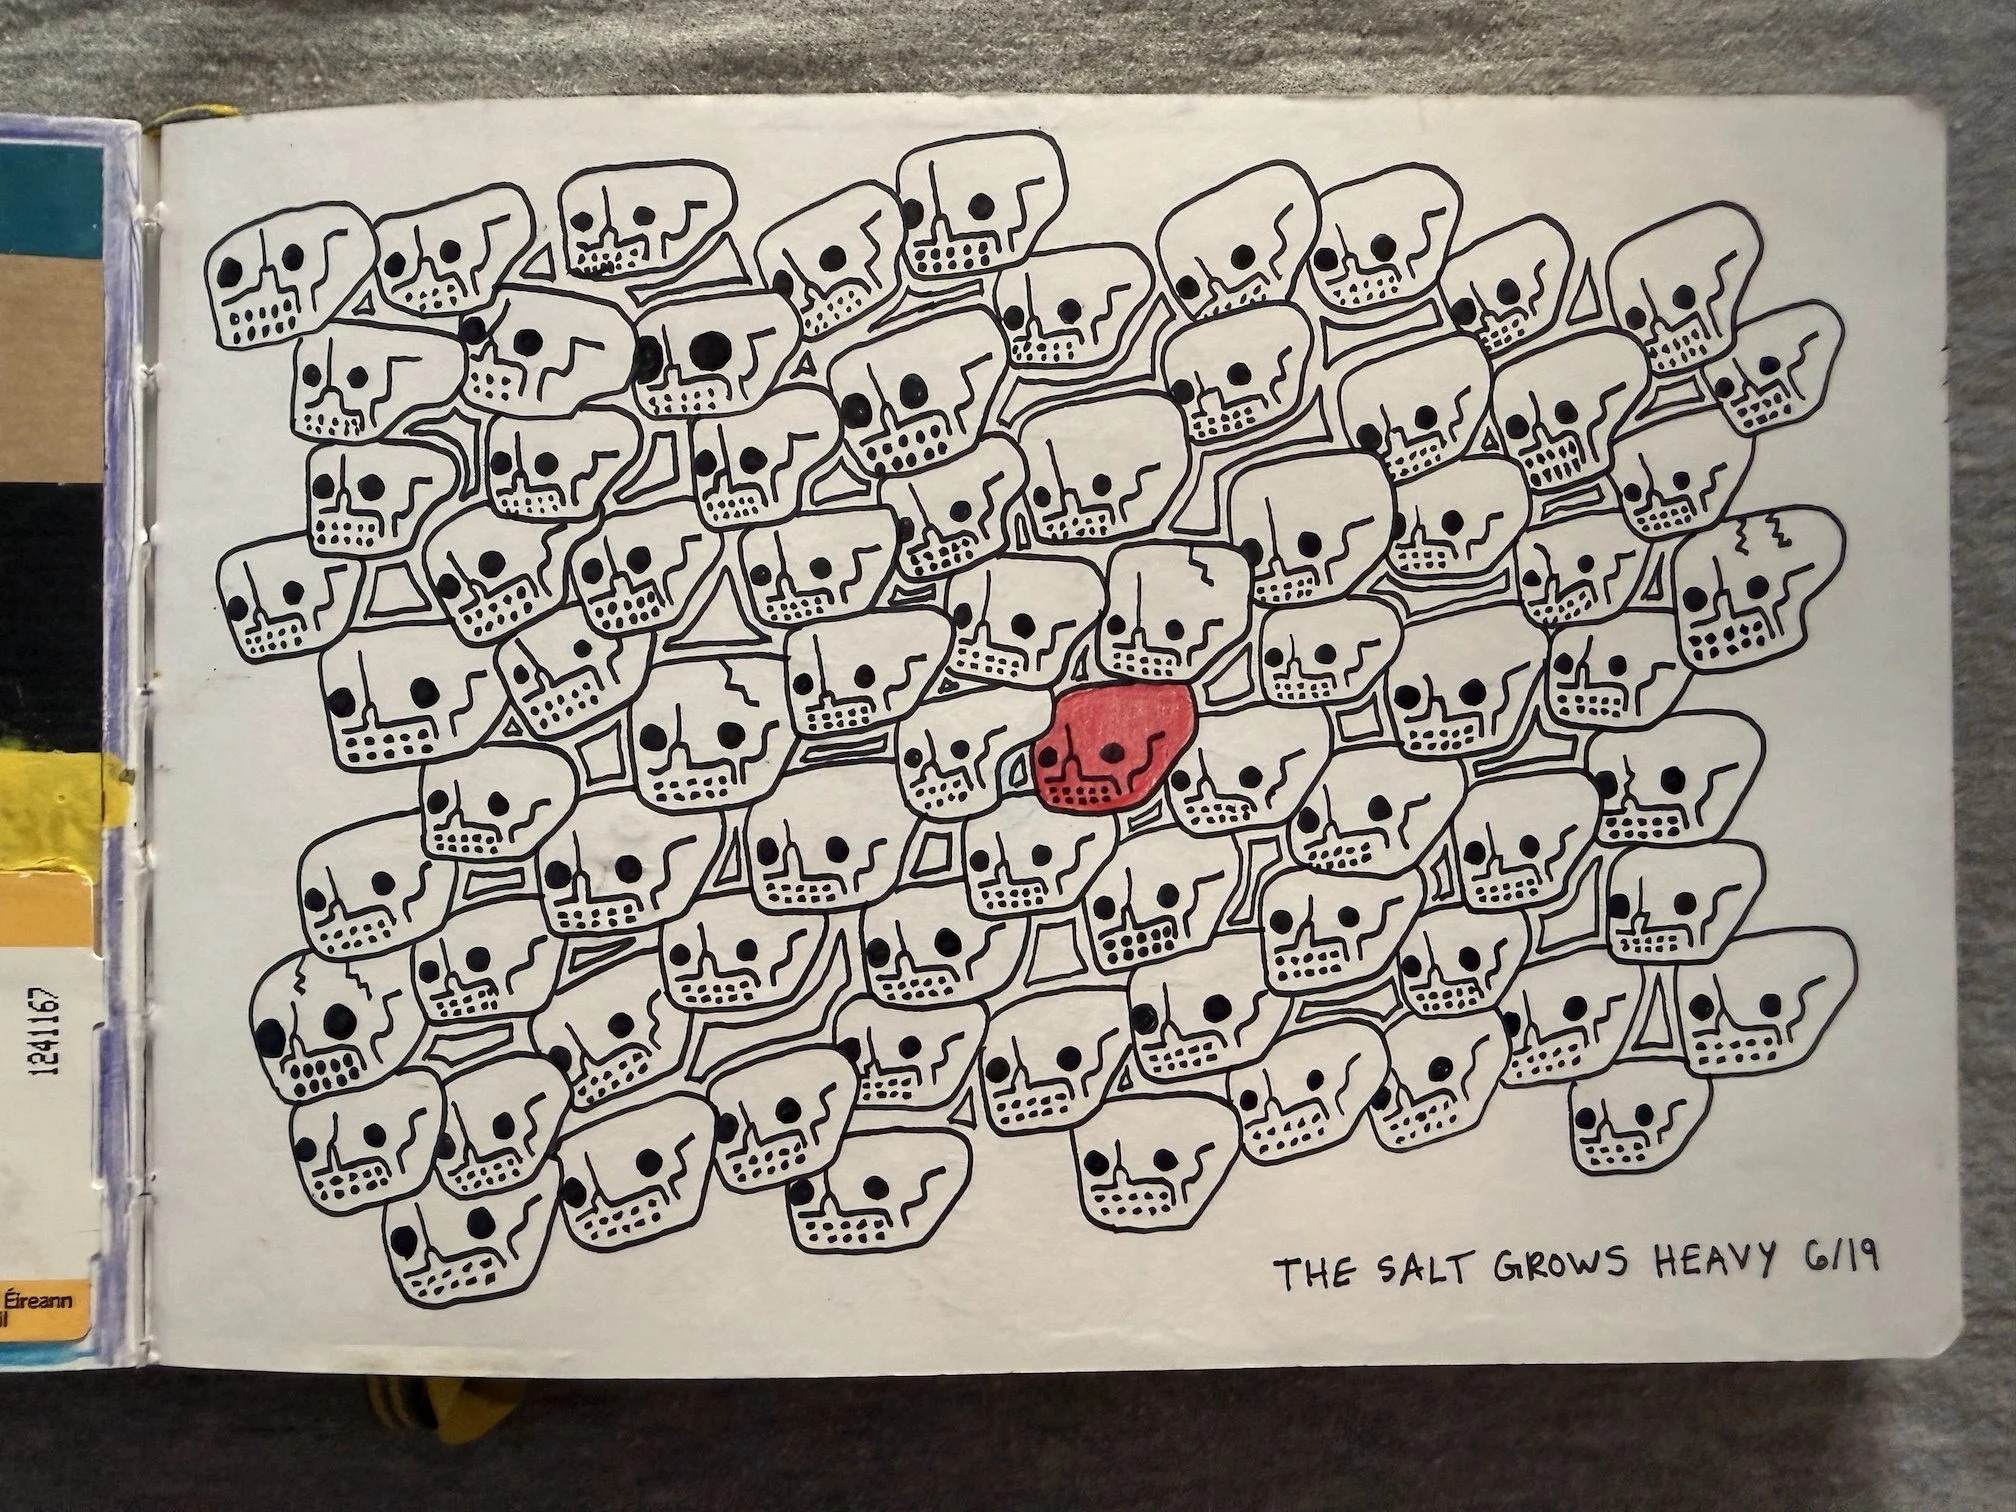 1241167
Éireann
THE SALT GROWS HEAVY 6/19